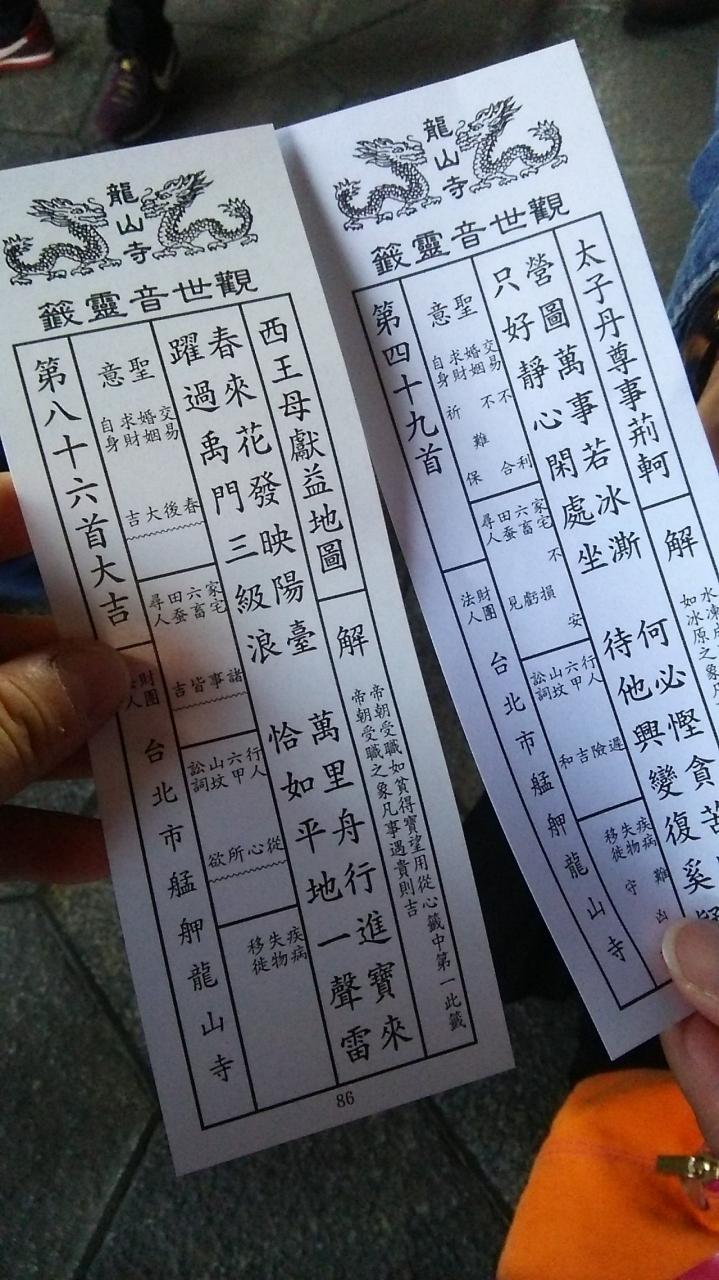 龍山寺
觀世音靈籤
西王母獻益地圖
解
帝朝受職如貧得寶望用從心籤中第一此籤
帝朝受職之象凡事遇貴則吉
春來花發映陽臺 萬里舟行進寶來
躍過禹門三級浪 恰如平地一聲雷
聖意
交易
婚姻
求財
自身
春後大吉
家宅
六畜
田蚕
尋人
諸事皆吉
行人
六甲
山坟
訟詞
從心所欲
疾病
失物
移徙
第八十六首大吉
財團
人
台北市艋舺龍山寺
86
龍山寺
觀世音靈籤
太子丹尊事荊軻
解
水凍成
如冰原之象
營圖萬事若冰澌 何必慳貪苦
只好靜心閑處坐 待他興變復奚
聖意
交易 不合
婚姻 不利
求財 難保
自身 祈
家宅 不安
六畜 損
田蚕 虧
尋人 見
行人 遲
六甲 險
山坟 吉
訟詞 和
疾病 難
失物 凶
移徙 守
第四十九首
財團
法人
台北市艋舺龍山寺